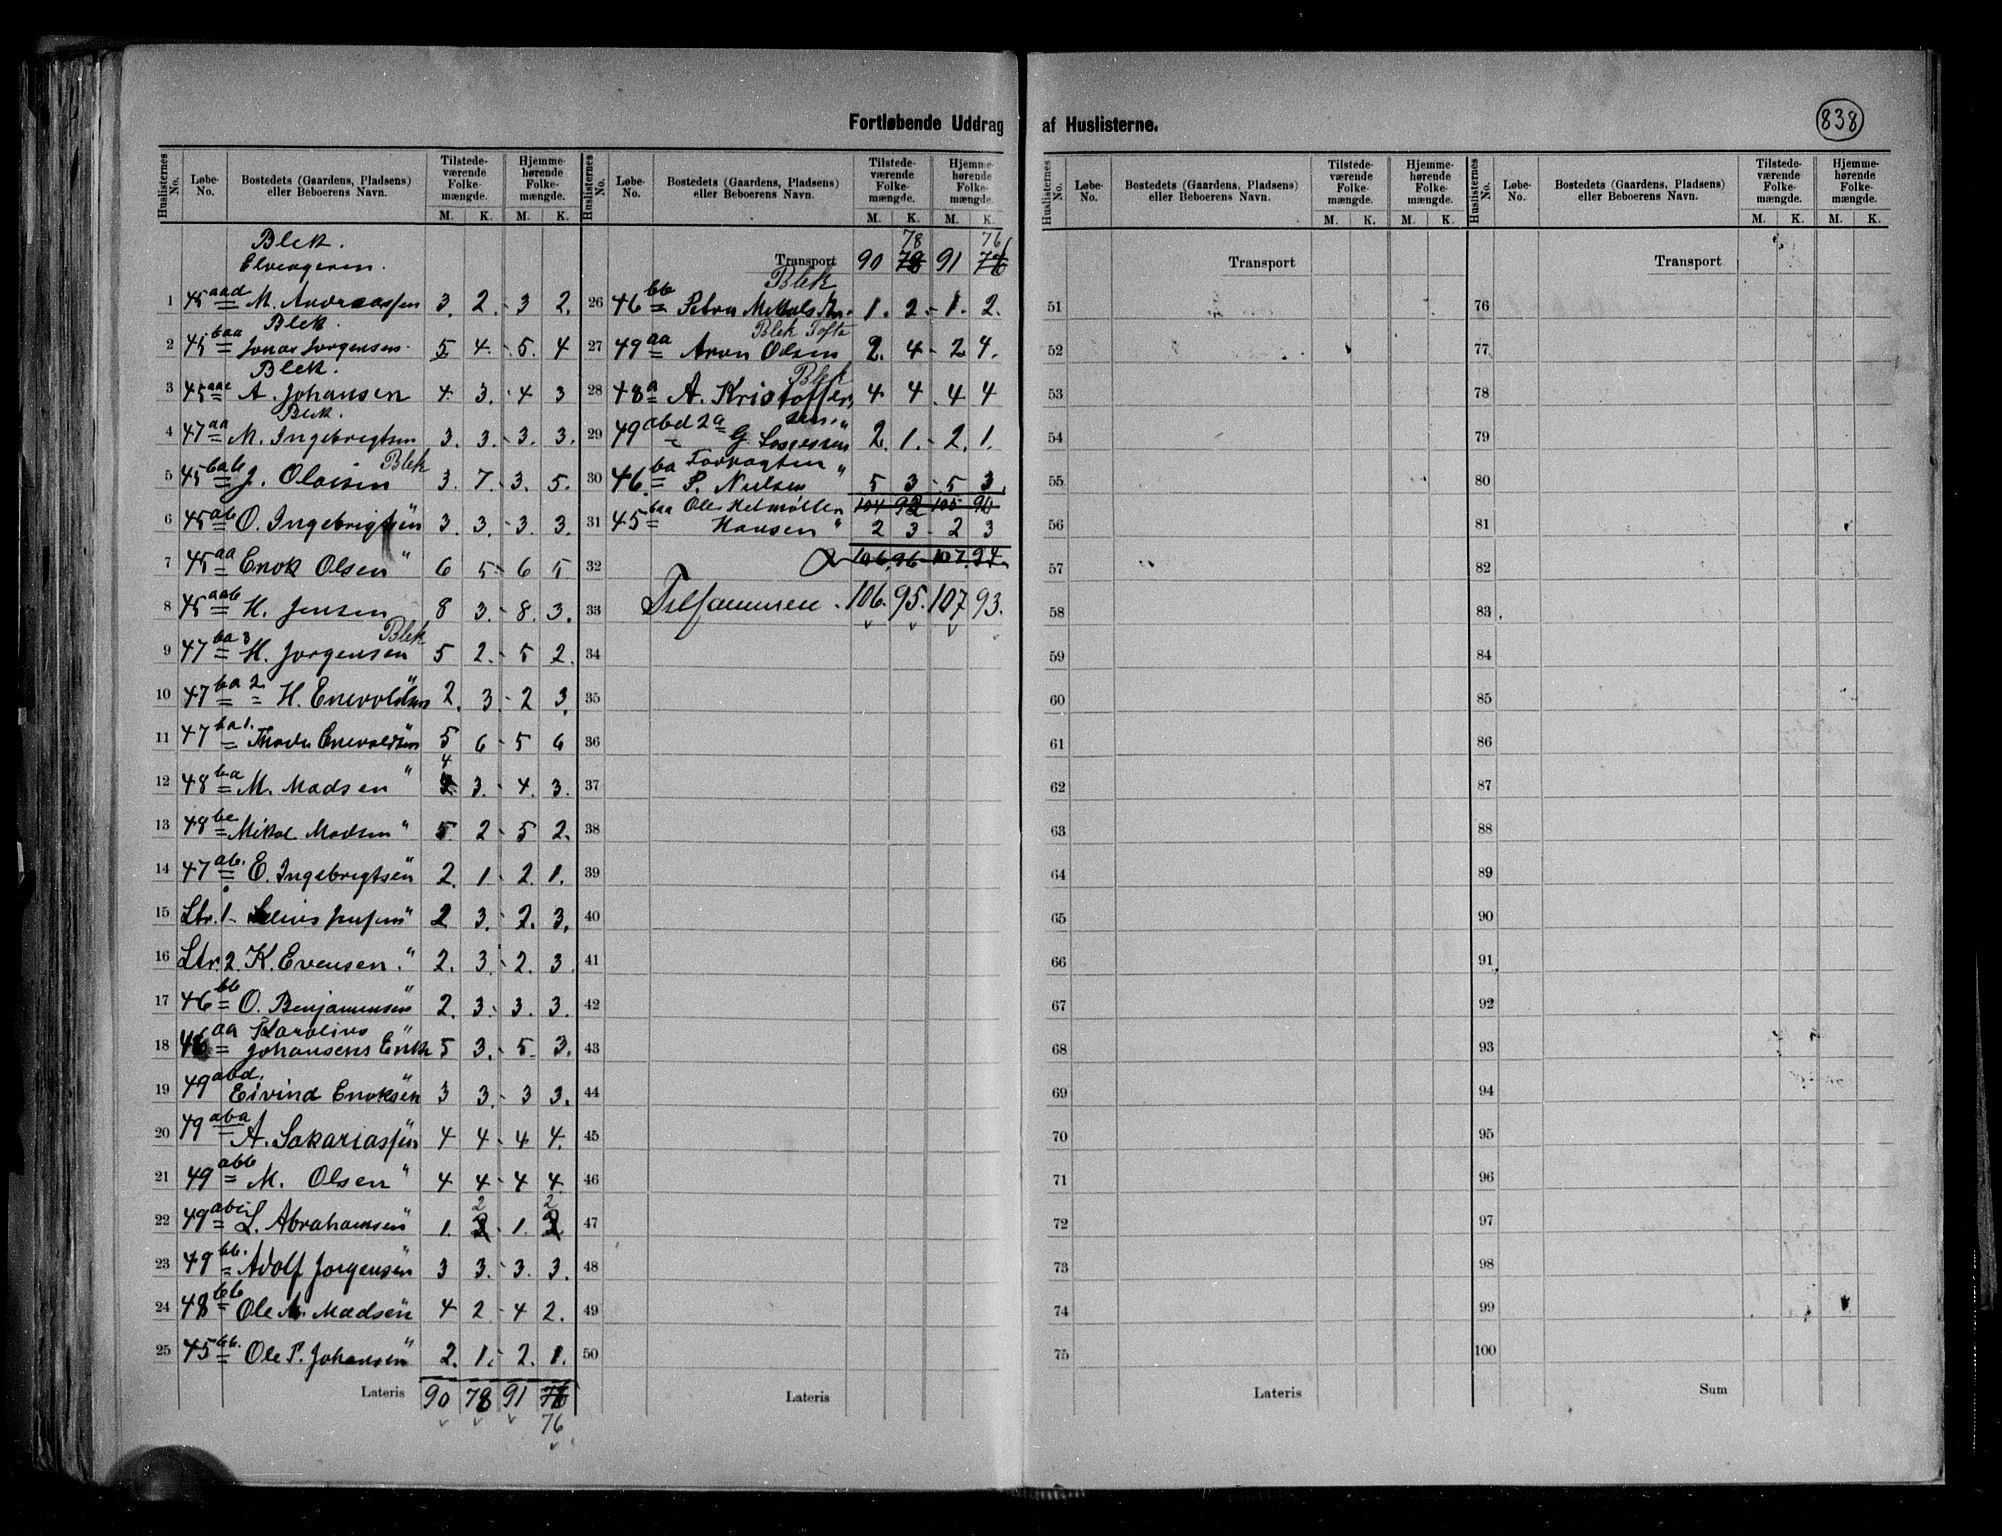 838
Fortløbende Uddrag af Huslisterne.
Huslisternes No. Løbe-No. Bostedets (Gaardens, Pladsens) eller Beboerens Navn. Tilstedeværende Folkemængde. M. K. Hjemmehørende Folkemængde. M. K.
Blek.
1 45 aad M. Andreassen 3. 2. 3 2.
Blek.
2 45 baa Jonas Jorgensen. 5 4. 5. 4
Blek.
3 45 A. Johansen 4 3. 4 3
Blek.
4 47 aa M. Ingebrigtsen 3. 3. 3. 3.
5 45 bab J. Olaisen Blek 3. 7. 3. 5.
6 45 ab O. Ingebrigtsen " 3. 3. 3. 3.
7 45 aa Enok Olsen " 6 5 6 5
8 45 aab H. Jensen 8 3. 8. 3.
9 47 ba 3 H. Jorgensen Blek 5 2. 5 2.
10 47 ba 2 H. Enevoldsen " 2. 3 2 3.
11 47 ba 1. Enevoldsen " 5 6 5 6
12 48 ba M. Madsen " 4 3. 4. 3.
13 48 Mikal Madsen " 5. 2 5 2.
14 47 ab. E. Ingebrigtsen " 2. 1. 2. 1.
15 Ltr. 1 " 2 3. 2. 3.
16 Ltr. 2. K. Evensen. " 2. 3. 2. 3.
17 46 bb O. Benjaminsen " 2. 3. 3. 3.
18 46 aa Karolius Johansens Enke " 5 3. 5. 3.
19 49 abd. Eivind Enoksen " 3 3. 3 3.
20 49 aba A. Sakariassen " 4 4 4 4.
21 49 abb M. Olsen " 4 4 4 4.
22 49 abc L. Abrahamsen " 1. 2 1. 2
23 49 bb. Adolf Jorgensen " 3 3. 3. 3.
24 48 bb Ole A. Madsen " 4 2 4 2.
25 45 bb. Ole P. Johansen " 2. 1. 2. 1.
Lateris 90 78 91 76
76
Huslisternes No. Løbe-No. Bostedets (Gaardens, Pladsens) eller Beboerens Navn. Tilstedeværende Folkemængde. M. K. Hjemmehørende Folkemængde. M. K.
78 76
Transport 90 78 91 76
Blek
26 46 bb Petra 1. 2. 1. 2.
Blek Tofta
27 49 aa Aron Olsen 2. 4 2 4.
Blek
28 48 a A. Kristoffersen. 4 4 4 4
29 49 abd 2a G. " 2. 1. 2. 1.
30 46 ba P. Nielsen " 5 3 5 3.
104 92 105 90
31 45 baa Ole Helmøller Hansen " 2 3 2 3
32 106 96 107 94
33 Tilsammen. 106. 95. 107. 93.
34
35
36
37
38
39
40
41
42
43
44
45
46
47
48
49
50
Lateris
Huslisternes No. Løbe-No. Bostedets (Gaardens, Pladsens) eller Beboerens Navn. Tilstedeværende Folkemængde. M. K. Hjemmehørende Folkemængde. M. K.
Transport
51
52
53
54
55
56
57
58
59
60
61
62
63
64
65
66
67
68
69
70
71
72
73
74
75
Lateris
Huslisternes No. Løbe-No. Bostedets (Gaardens, Pladsens) eller Beboerens Navn. Tilstedeværende Folkemængde. M. K. Hjemmehørende Folkemængde. M. K.
Transport
76
77
78
79
80
81
82
83
84
85
86
87
88
89
90
91
92
93
94
95
96
97
98
99
100
Sum